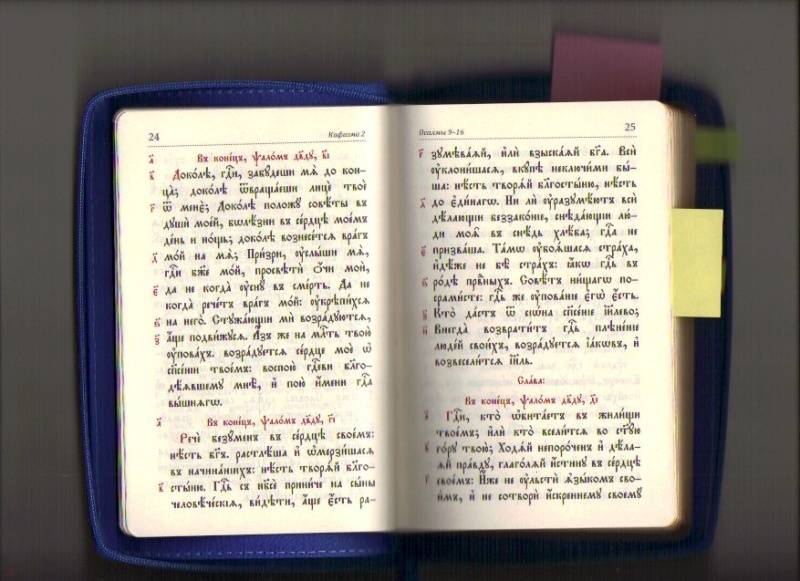 24
Каѳисма 2
в҃ Въ коне́цъ, ѱало́мъ дв҃ду, в҃і
Доко́лѣ, гдⷭ҇и, забу́деши мѧ̀ до кон-
ца̀; доко́лѣ ѿвраща́еши лицѐ твоѐ
ѿ менє̀; Доко́лѣ положу̀ совѣ́ты въ
душѝ мое́й, бѡлѣ́зни въ се́рдцѣ мое́мъ
де́нь и҆ но́щь; доко́лѣ вознесе́тсѧ вра́гъ
мо́й на мѧ̀; При́зри, ᲂу҆слы́ши мѧ̀,
гдⷭ҇и бж҃е мо́й, просвѣтѝ ѻ҆́чи моѝ,
да не когда̀ ᲂу҆снꙋ̀ въ сме́рть. Да не
когда̀ рече́тъ вра́гъ мо́й: ᲂу҆крѣпи́хсѧ
на него̀. Стужа́ющїи мѝ возра́дуютсѧ,
а҆́ще подви́жусѧ. А҆́зъ же на млⷭ҇ть твою̀
ᲂу҆пова́хъ. возра́дуетсѧ се́рдце моѐ ѡ҆
спⷭ҇се́нїи твое́мъ: воспою̀ гдⷭ҇еви бл҃го-
дѣ́ѧвшему мнѣ̀, и҆ пою̀ и҆́мени гдⷭ҇а
вы́шнѧгѡ.
Въ коне́цъ, ѱало́мъ дв҃ду, г҃і
Речѐ безу́менъ въ се́рдцѣ свое́мъ:
нѣ́сть бг҃ъ. растлѣ́ша и҆ ѡ҆мерзи́шасѧ
въ начина́нїихъ: нѣ́сть творѧ́й бл҃го-
сты́ню. Гдⷭ҇ь съ нб҃сѐ прини́че на сы́ны
человѣ́чєскїѧ, ви́дѣти, а҆́ще є҆́сть ра-
Ѱалмы 9-16
25
зумѣва́ѧй, и҆лѝ взыска́ѧй бг҃а. Всѝ
ᲂу҆клони́шасѧ, вку́пѣ неключи́ми бы́-
ша: нѣ́сть творѧ́й бл҃госты́ню, нѣ́сть
до є҆ди́нагѡ. Ни ли̑ ᲂу҆разумѣ́ютъ всѝ
дѣ́лающїи беззако́нїе, снѣда́ющїи лю́-
ди моѧ̑ въ снѣ́дь хлѣ́ба; гдⷭ҇а не
призва́ша. Та́мѡ ᲂу҆боѧ́шасѧ стра́ха,
и҆дѣ́же не бѣ̀ стра́хъ: ꙗ҆́кѡ гдⷭ҇ь въ
ро́дѣ првⷣныхъ. Совѣ́тъ ни́щагѡ по-
срами́сте: гдⷭ҇ь же ᲂу҆пова́нїе є҆гѡ̀ є҆́сть.
Кто̀ да́стъ ѿ сїѡ́на спⷭ҇се́нїе і҆и҃лево;
Внегда̀ возврати́тъ гдⷭ҇ь плѣне́нїе
люде́й свои́хъ, возра́дуетсѧ і҆а́кѡвъ, и҆
возвесели́тсѧ і҆и҃ль.
Сла́ва:
Въ коне́цъ, ѱало́мъ дв҃ду, д҃і
Гдⷭ҇и, кто̀ ѡ҆бита́етъ въ жили́щи
твое́мъ; и҆лѝ кто̀ всели́тсѧ во ст҃у́ю
го́ру твою̀; Ходѧ́й непоро́ченъ и҆ дѣ́ла-
ѧй пра́вду, глаго́лѧй и҆́стину въ се́рдцѣ
свое́мъ: И҆́же не ᲂу҆льстѝ ѧ҆зы́комъ сво-
и́мъ, и҆ не сотворѝ и҆́скреннему своему̀